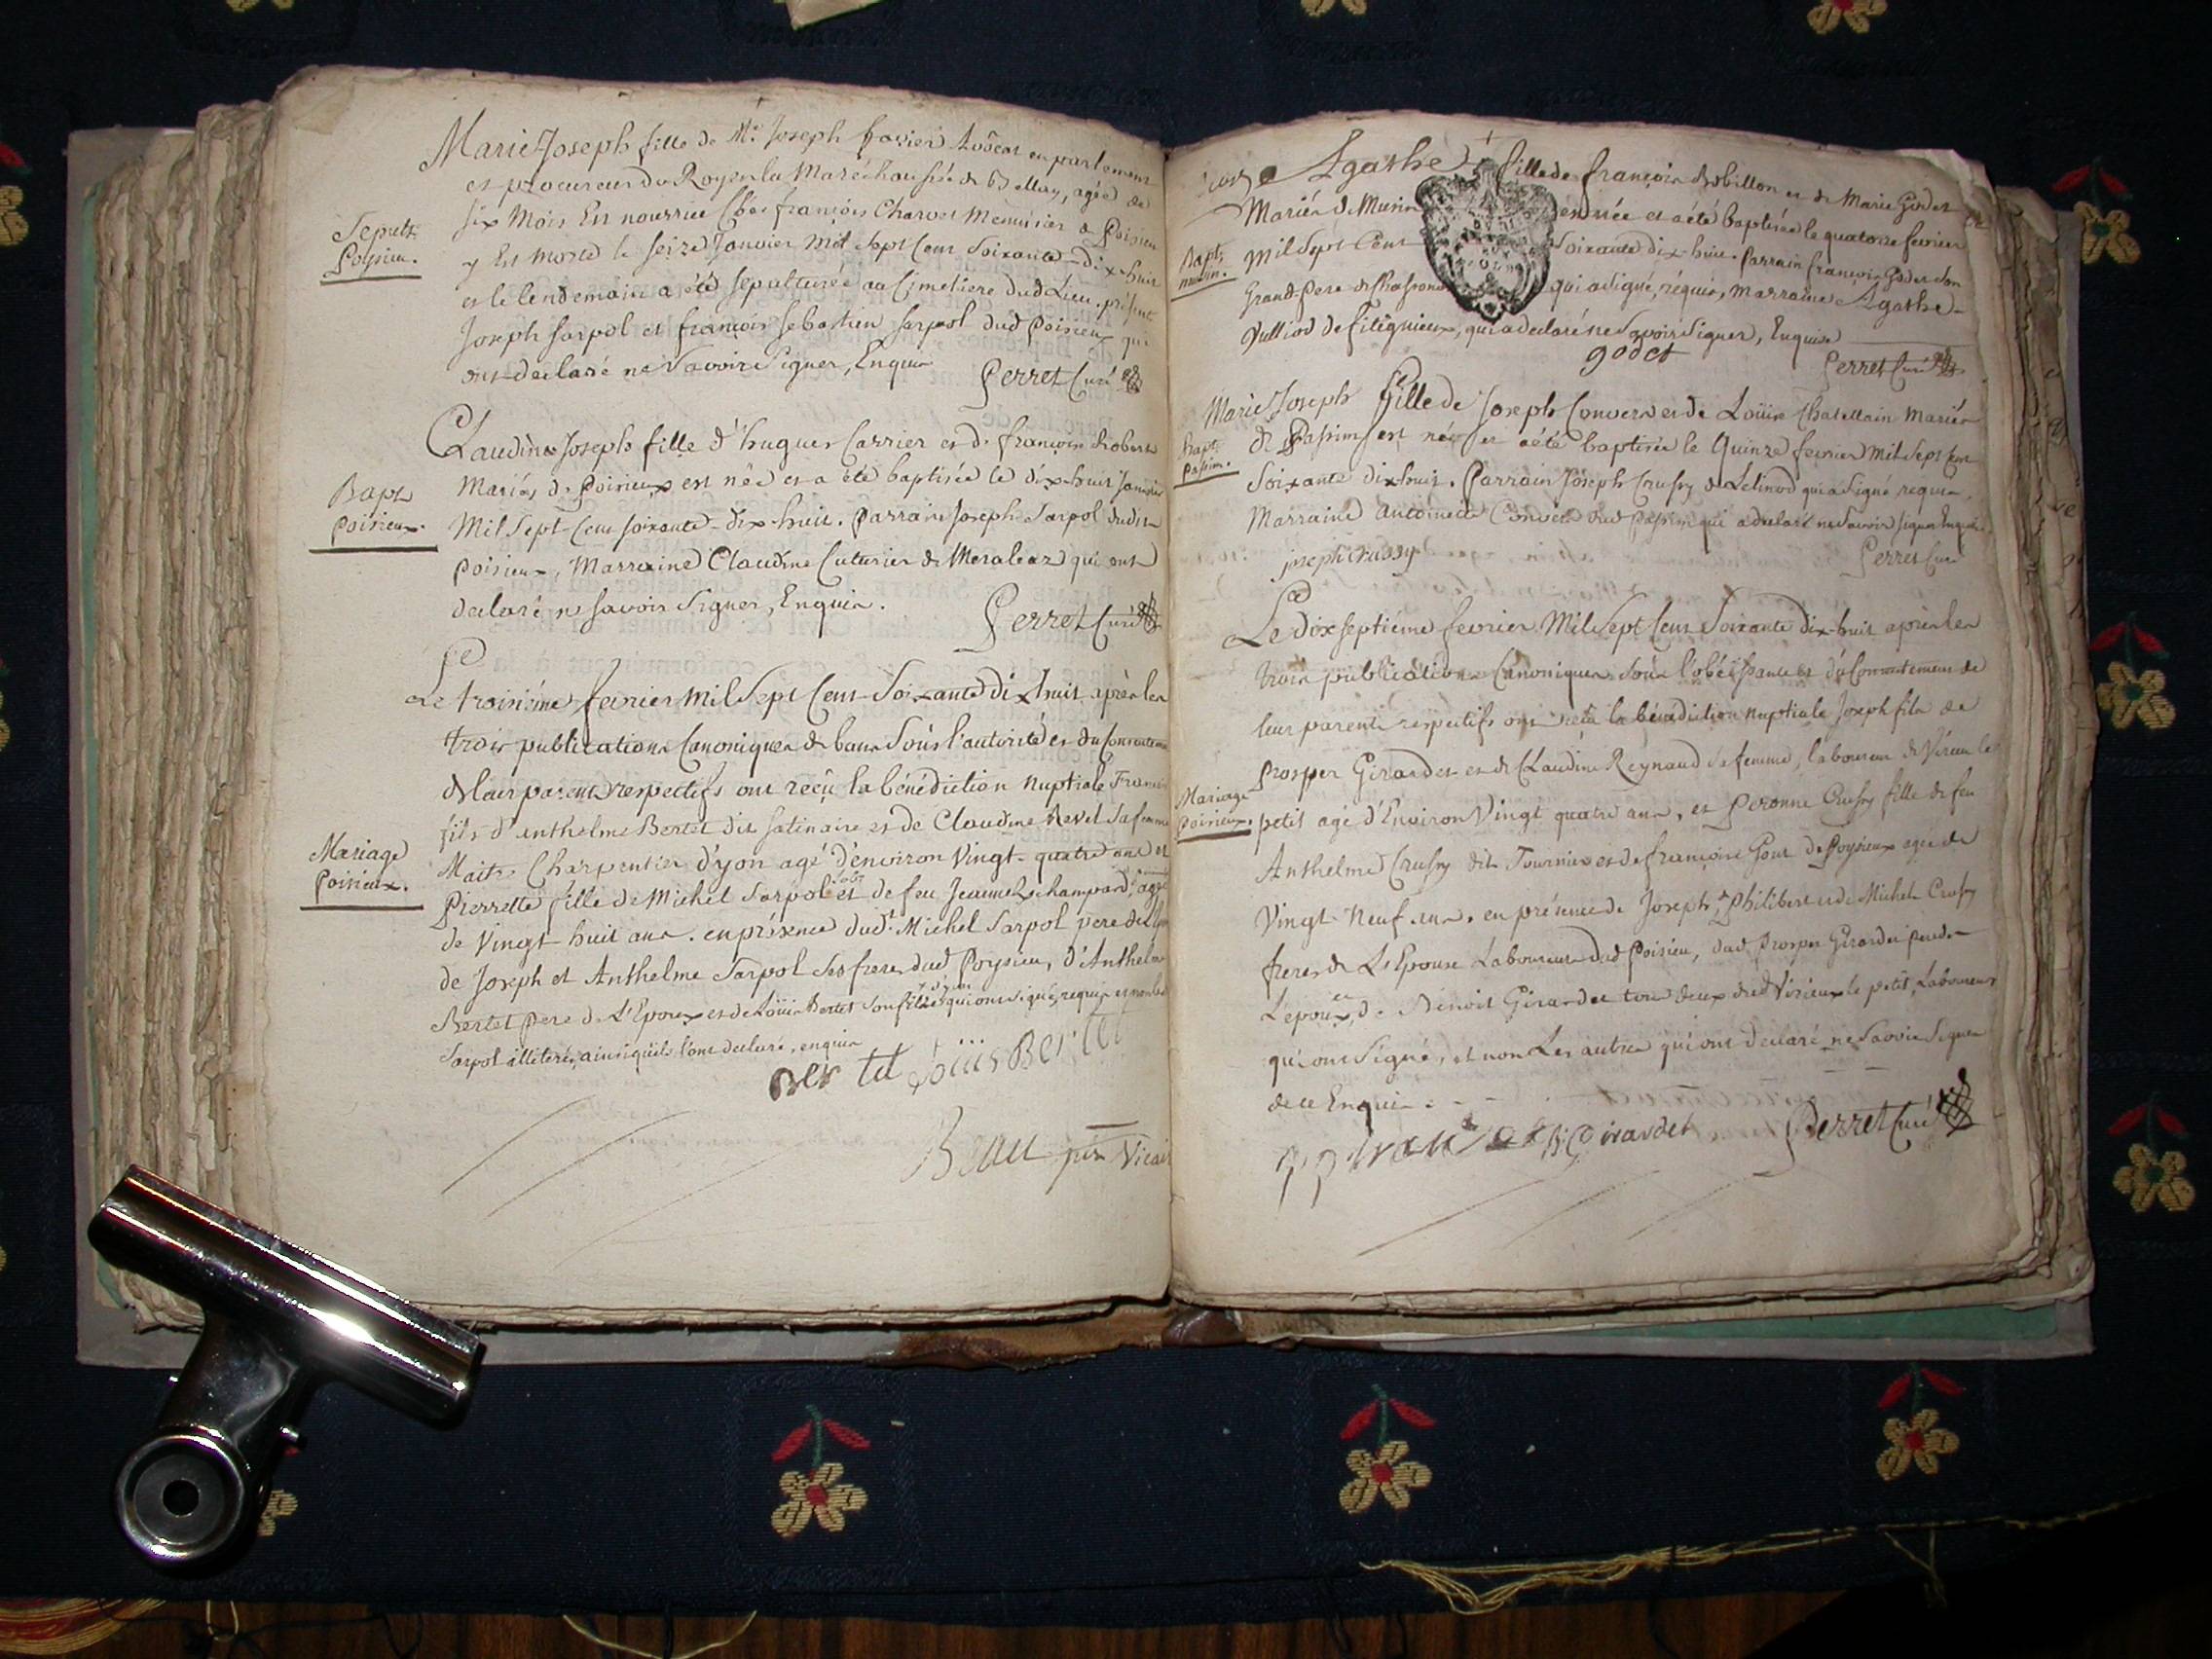 Marie Joseph fille de Mr. Joseph favier Avocat en parlement
et procureur du Roy en la Maréchaussée de Belley, agée de
six Mois En nourrice chés françois Charvet Menuisier a Poisieu
y Est Morte le seize Janvier Mil Sept Cent Soixante-dix-huit
et le lendemain a été sepulturée au Cimetiere dud Lieu, présent
Joseph sarpol et françois sebastien sarpol dud Poisieux qui
ont declaré ne Savoir Signer, Enquis
Perret Curé
Sepult.
Poysieu.
Claudine Joseph fille d'hugues Carrier et de françoise Robert
Mariés de Poisieux est née et a été baptisée le dix-huit Janvier
Mil Sept-Cent soixante-dix-huit. Parrain Joseph Sarpol dudit
Poisieux, Marraine Claudine Cuturier de Meraleaz qui ont
declaré ne savoir Signer, Enquis.
Perret Curé
Bapt
Poisieux.
Le troisiéme fevrier Mil Sept Cent-Soixante dix huit après les
trois publications Canoniques de bans Sous l'autorité et du Consentement
de leurs parents respectifs ont reçu la bénédiction nuptiale
fils d'anthelme Bertet dit satinaire et de Claudine Revel Sa femme
Maitre Charpentier d'yon agé d'environ Vingt-quatre ans et
Pierrette fille de Michel Sarpol et de feu Jeanne champard, agée
de Vingt-huit ans. en présence dud. Michel Sarpol pere de
de Joseph et Anthelme Sarpol Ses freres dud Poysieu, d'Anthelme
Bertet Pere de L'Epoux et de Loüis Bertet Son fils qui ont signé, requis et non les
Sarpol illiterés ainsi qu'ils l'ont declaré, enquis
Bertet Loüis Bertet
Beau ptre Vicaire
Mariage
Poisieux.
Agathe fille de françois Robillon et de Marie Godet
Mariés de Musin est née et a été baptisée le quatorze fevrier
Mil Sept Cent Soixante dix-huit. Parrain françois Godet Son
Grand-Pere de qui a signé, réquis, marraine Agathe
Vulliod de fitignieux, qui a declaré ne Savoir Signer, Enquise
godet
Perret Curé
Bapt.
musin.
Marie Joseph fille de Joseph Convert et de Loüise Chatellain Mariés
de Passin est née et a été baptisée le Quinze fevrier Mil Sept Cent
Soixante dix-huit. Parrain Joseph Crussy de Lelinod qui a signé requis.
Marraine Antoinette dud Passin qui a declaré ne Savoir signer Enquise
joseph crussy
Perret Curé
Bapt.
Passin.
Le dix septiéme fevrier Mil Sept Cent Soixante dix-huit après les
trois publications Canoniques Sous l'obéissance et du Consentement de
leur parents respectifs ont reçu la bénédiction nuptiale Joseph fils de
Prosper Girardet et de Claudine Reynaud sa femme, laboureur de Virieu le
petit agé d'Environ Vingt quatre ans, et Peronne Crussy fille de feu
Anthelme Crussy dit Tournier et de françoise Gout de Poysieux agée de
Vingt-Neuf ans. en présence de Joseph, de Philibert et de Michel Crussy
freres de L'Epouse Laboureurs dud Poisieu, dud Prosper Girardet pere de
L'epoux, de Benoit Girardet tous deux dud Virieux le petit, Laboureurs
qui ont Signé, et non Les autres qui ont declaré ne Savoir Signer
de ce Enquis
B. Girardet
Perret Curé
Mariage
Poisieux.